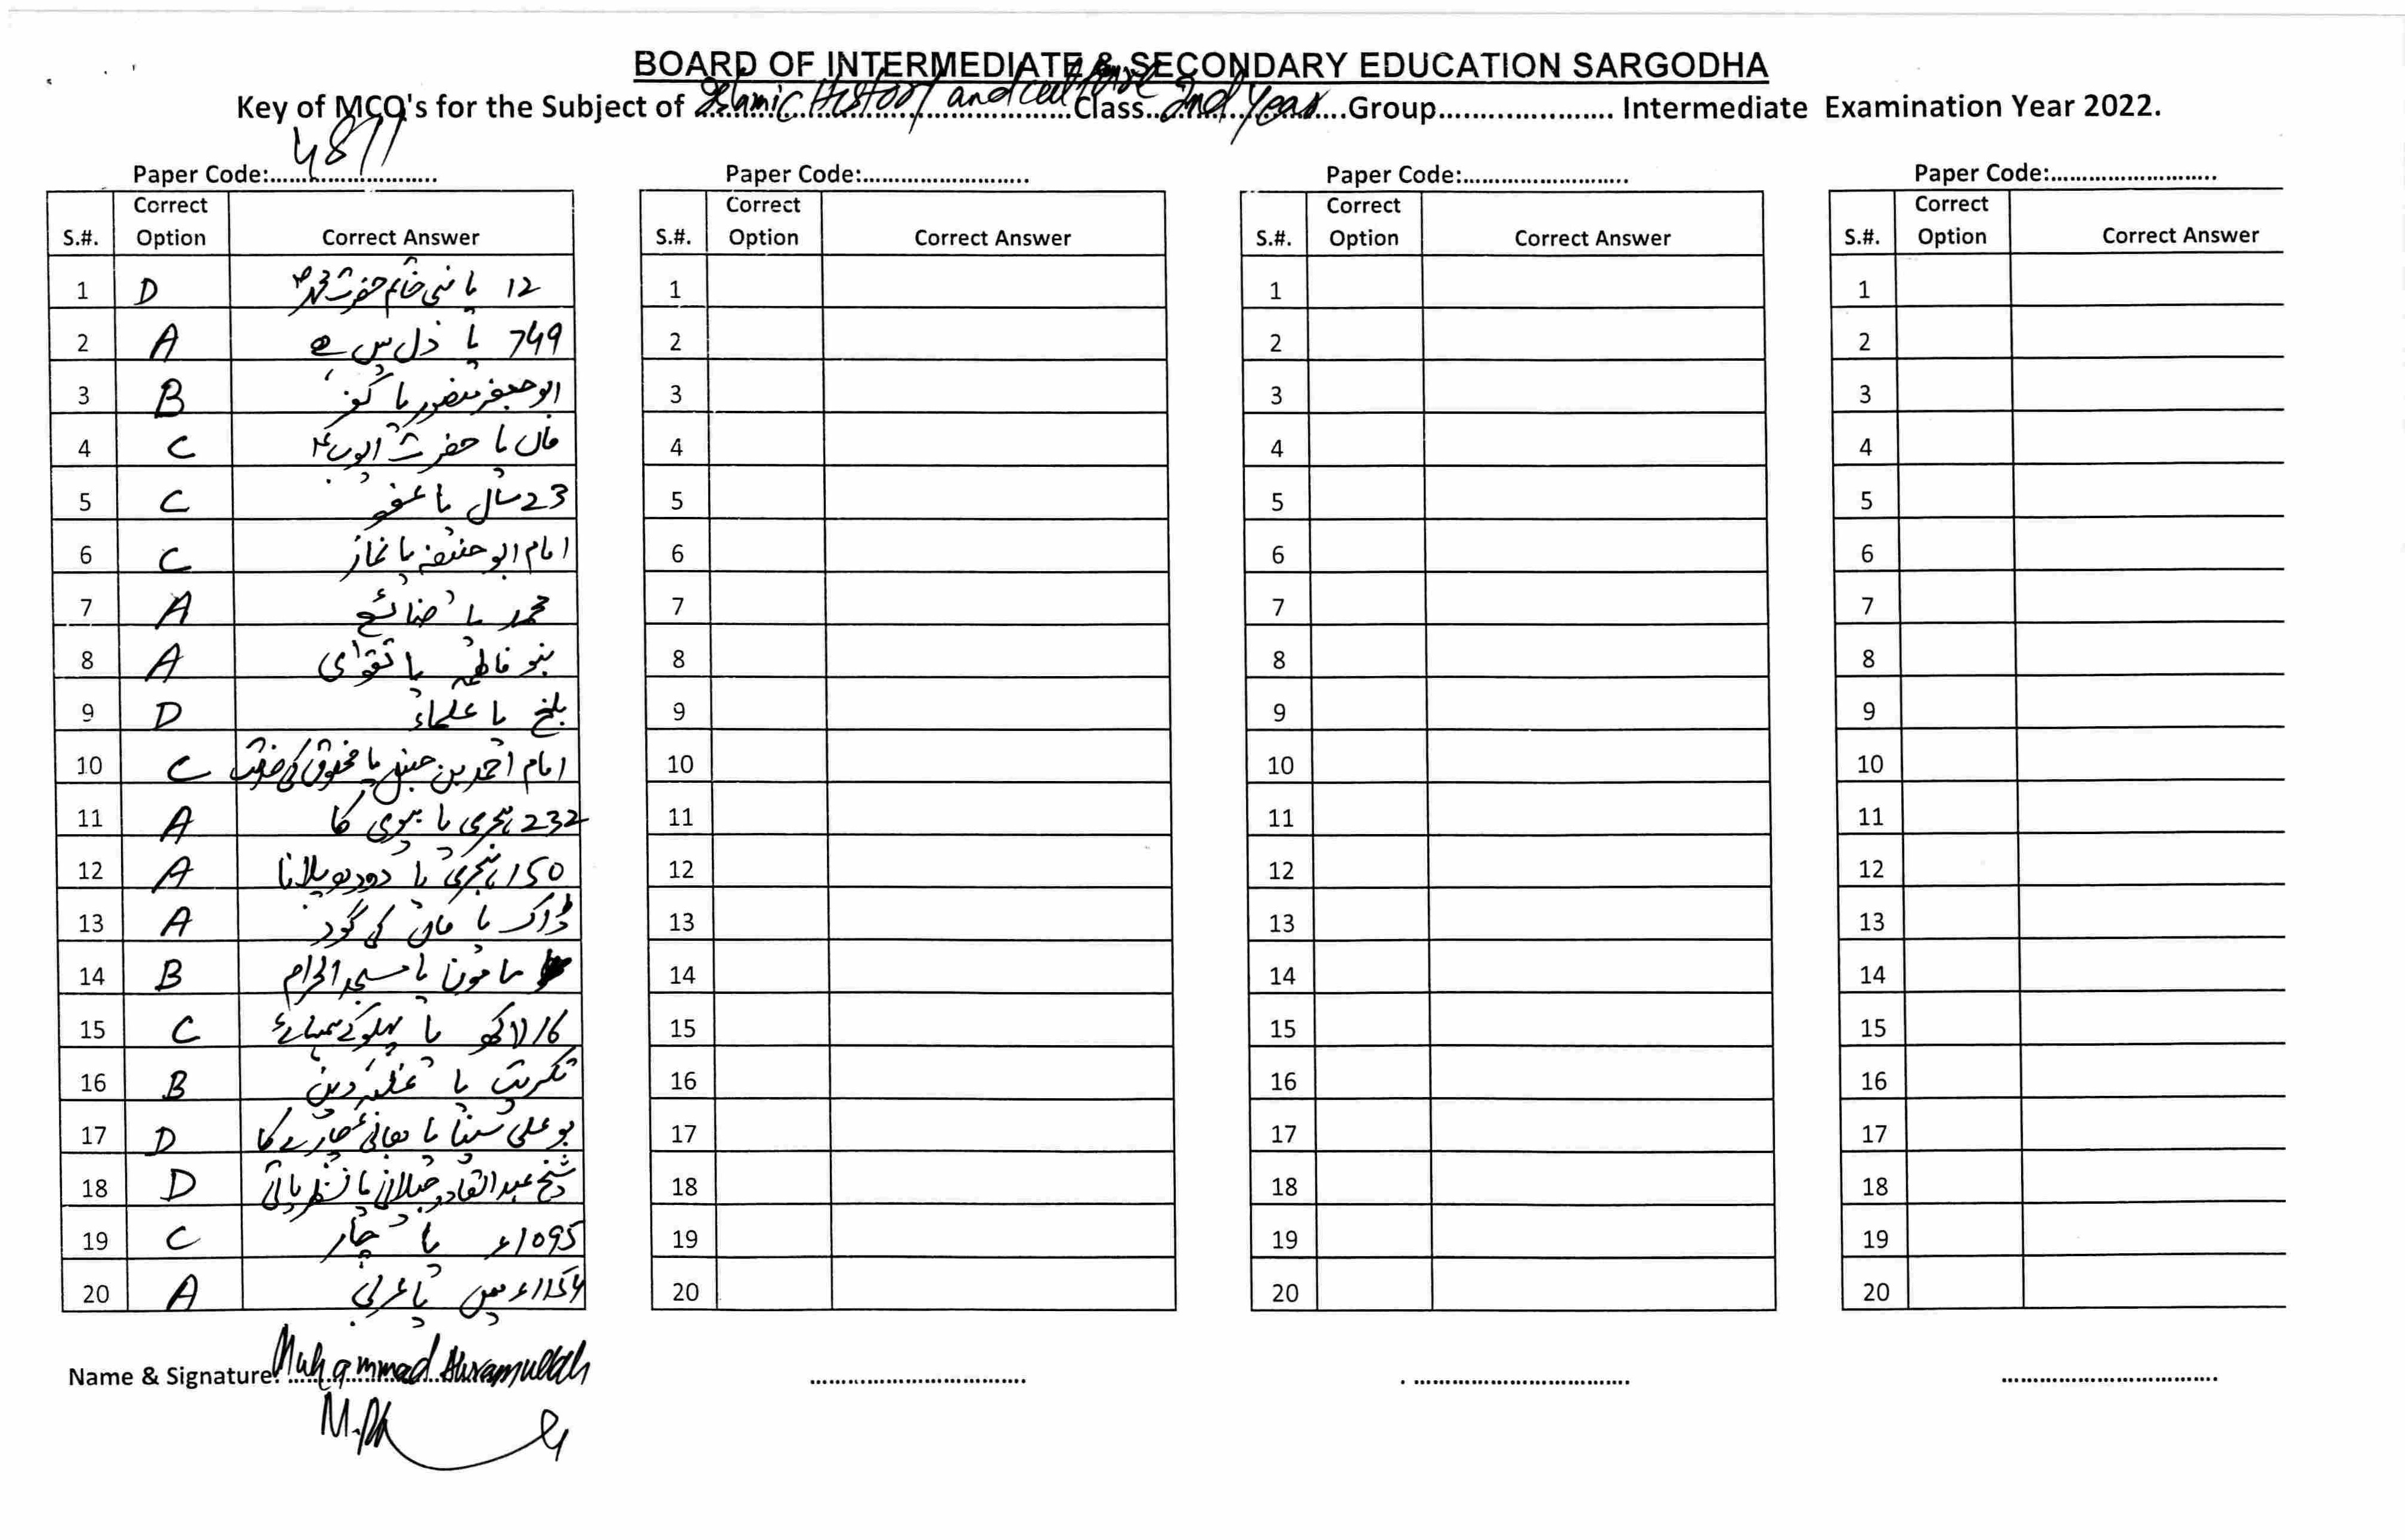 BOARD OF INTERMEDIATE & SECONDARY EDUCATION SARGODHA
Key of MCQ's for the Subject of Islamic History and culture Class 2nd Year Group.................... Intermediate Examination Year 2022.
Paper Code: 4871
S.#. Correct Option Correct Answer
1 D 12 یا نبی خاتم حضرت محمدؐ
2 A 749 یا دل سے
3 B ابو جعفر منصور یا
4 C ماں یا حضرت ایوبؑ
5 C 23 سال یا عفو
6 C امام ابو حنیفہ یا نماز
7 A محمد یا ضائع
8 A بنو فاطمہ یا تقوٰی
9 D بلخ یا علماء
10 C امام احمد بن حنبل یا مخلوق کی خدمت
11 A 232 ہجری یا بیوی کا
12 A 150 ہجری یا دودھ پلانا
13 A ڈاک یا ماں کی گود
14 B مامون یا مسجد الحرام
15 C 16 لاکھ یا پہلو کے ہمسائے
16 B تکریت یا غلبہ دین
17 D بو علی سینا یا بھائی چارے کا
18 D شیخ عبدالقادر جیلانی یا نظریاتی
19 C 1095ء یا چار
20 A 1154ء میں یا عربی
Name & Signature: Muhammad
Paper Code:..........................
S.#. Correct Option Correct Answer
1
2
3
4
5
6
7
8
9
10
11
12
13
14
15
16
17
18
19
20
Paper Code:..........................
S.#. Correct Option Correct Answer
1
2
3
4
5
6
7
8
9
10
11
12
13
14
15
16
17
18
19
20
Paper Code:..........................
S.#. Correct Option Correct Answer
1
2
3
4
5
6
7
8
9
10
11
12
13
14
15
16
17
18
19
20